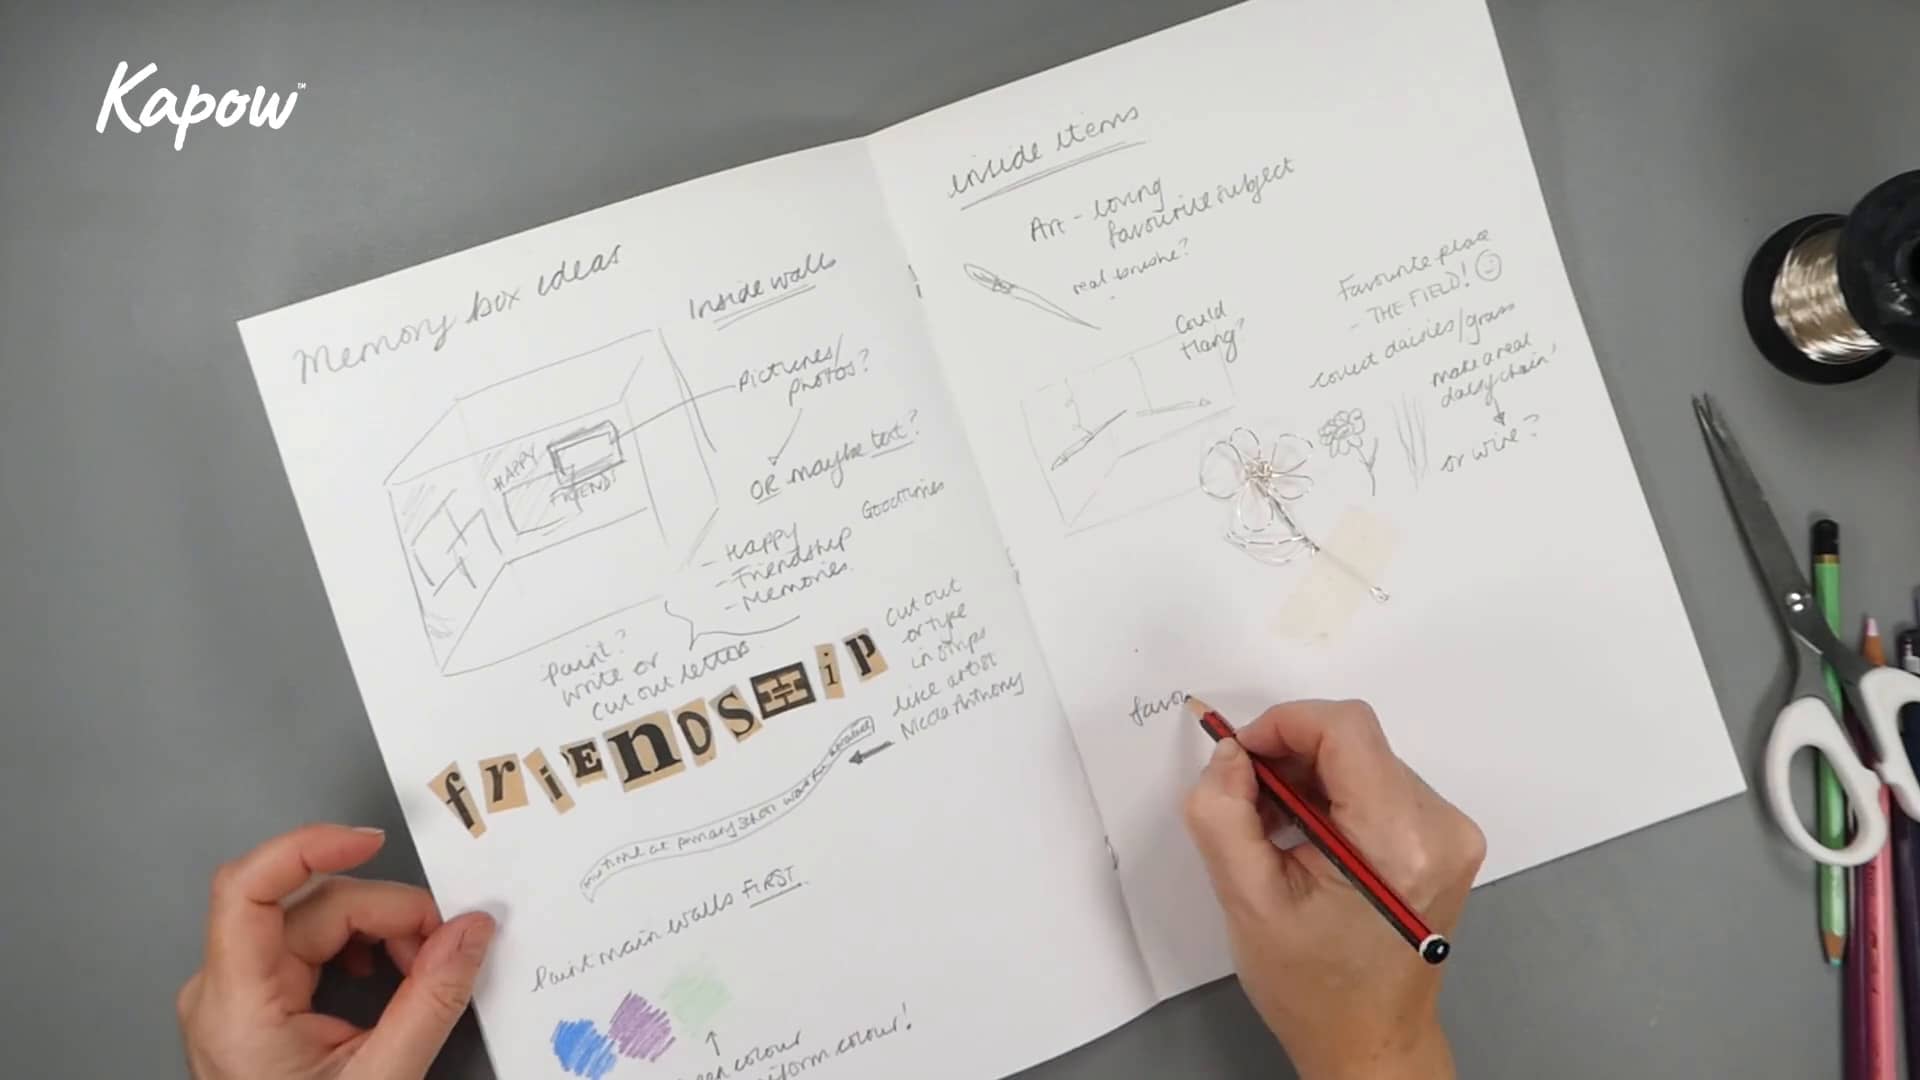 Kapow™
Memory box ideas
Inside walls
Pictures/
photos?
OR maybe text?
HAPPY
FRIENDS
Goodtimes
- HAPPY
- Friendship
- Memories.
Paint?
write or
cut out letters
cut out
or type
in strips
like artist
Nicola Anthony
friendship
time at primary school
Paint main walls FIRST.
colour
iform colour!
inside items
Art - loving
favourite subject
real brushe?
Could
Hang?
Favourite place
- THE FIELD!
collect daisies/grass
make a real
daisy chain?
or wire?
favou